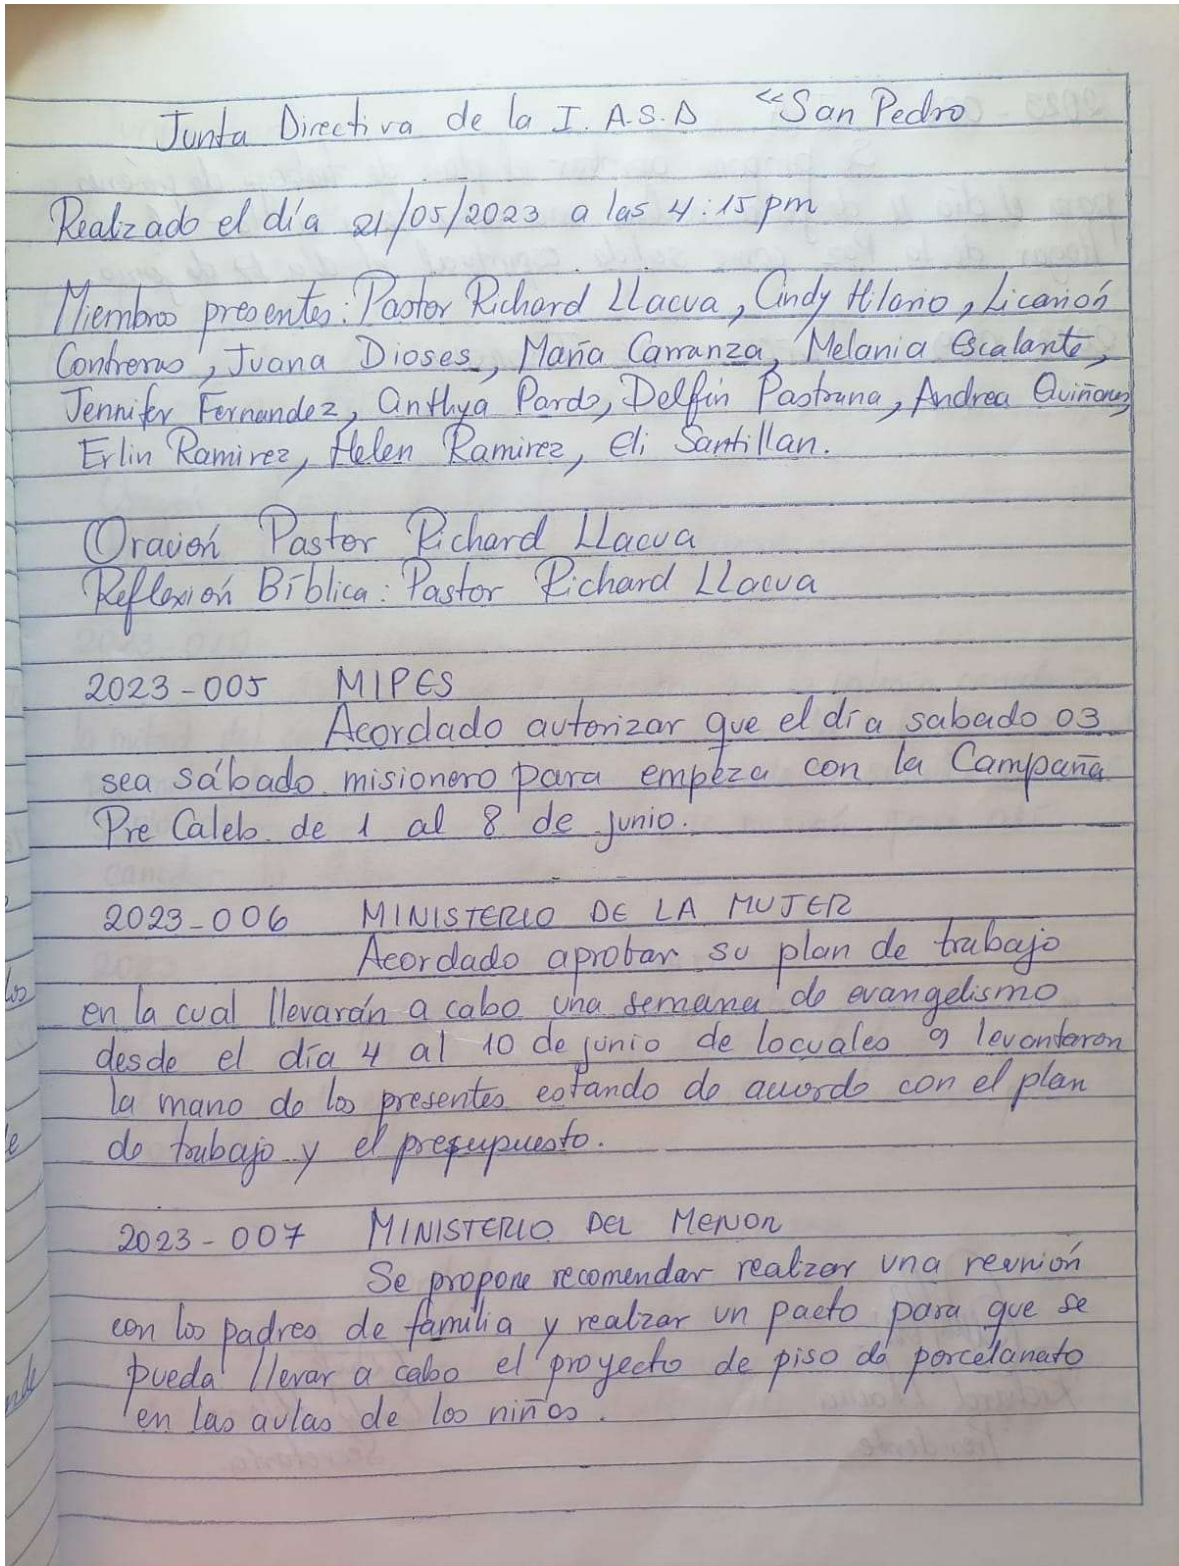 Junta Directiva de la I.A.S.D "San Pedro
Realzado el día 21/05/2023 a las 4:15 pm
Miembros presentes: Pastor Richard Llacua, Cindy Hilario, Licarión
Contreras, Juana Dioses, María Carranza, Melania Escalante,
Jennifer Fernandez, Cinthya Pardo, Delfín Pastrana, Andrea Quiñones,
Erlin Ramirez, Helen Ramirez, Eli Santillan.
Oración Pastor Richard Llacua
Reflexión Bíblica: Pastor Richard Llacua
2023-005 MIPES
Acordado autorizar que el día sabado 03
sea sábado misionero para empeza con la Campaña
Pre Caleb de 1 al 8 de junio.
2023-006 MINISTERIO DE LA MUJER
Acordado aprobar su plan de trabajo
en la cual llevarán a cabo una semana de evangelismo
desde el día 4 al 10 de junio de locuales 9 levantaron
la mano de los presentes estando de acuerdo con el plan
de trabajo y el presupuesto.
2023-007 MINISTERIO DEL MENOR
Se propone recomendar realzar una reunión
con los padres de familia y realzar un pacto para que se
pueda llevar a cabo el proyecto de piso de porcelanato
en las aulas de los niños.